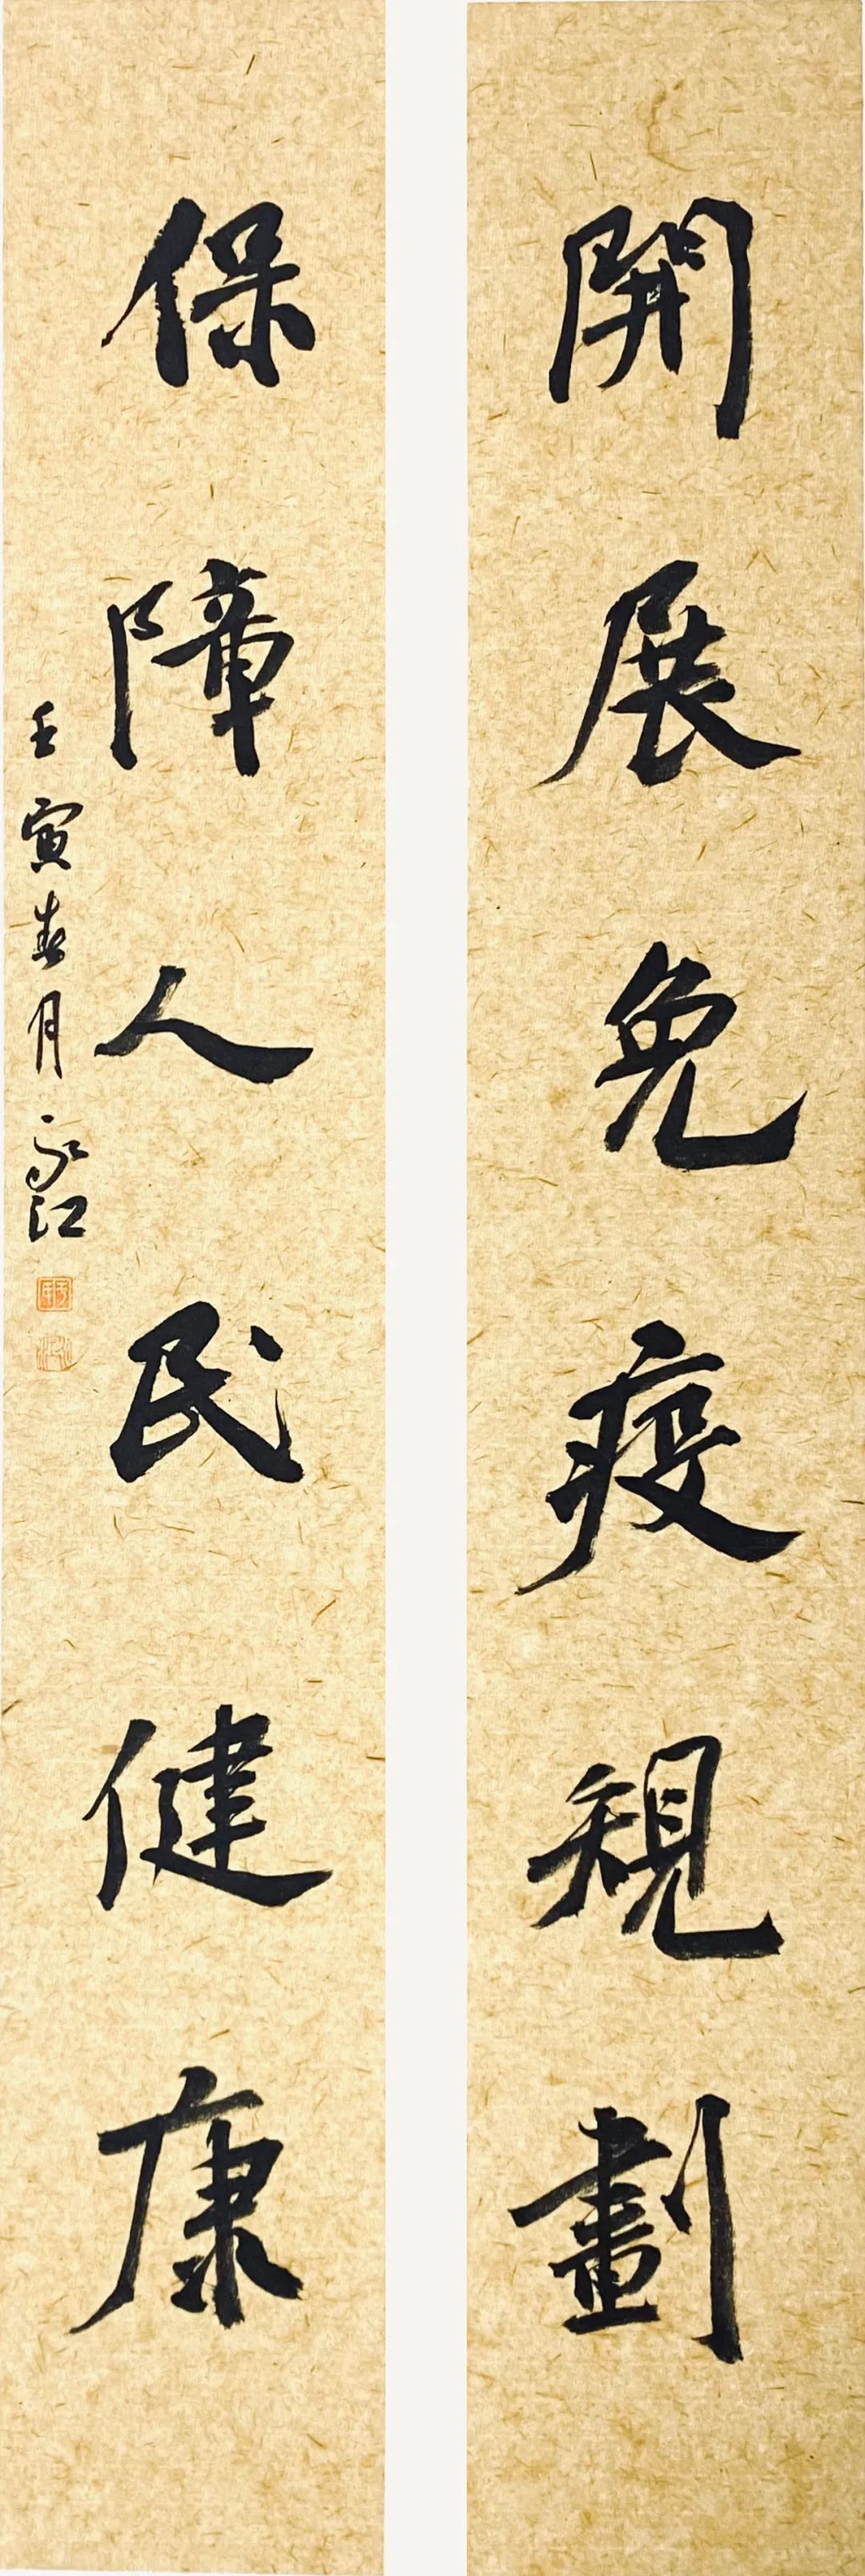 開展免疫規劃
保障人民健康
壬寅春月永江